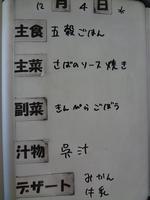 12月4日 水
主食 五穀ごはん
主菜 さばのソース焼き
副菜 きんぴらごぼう
汁物 呉汁
デザート みかん
牛乳